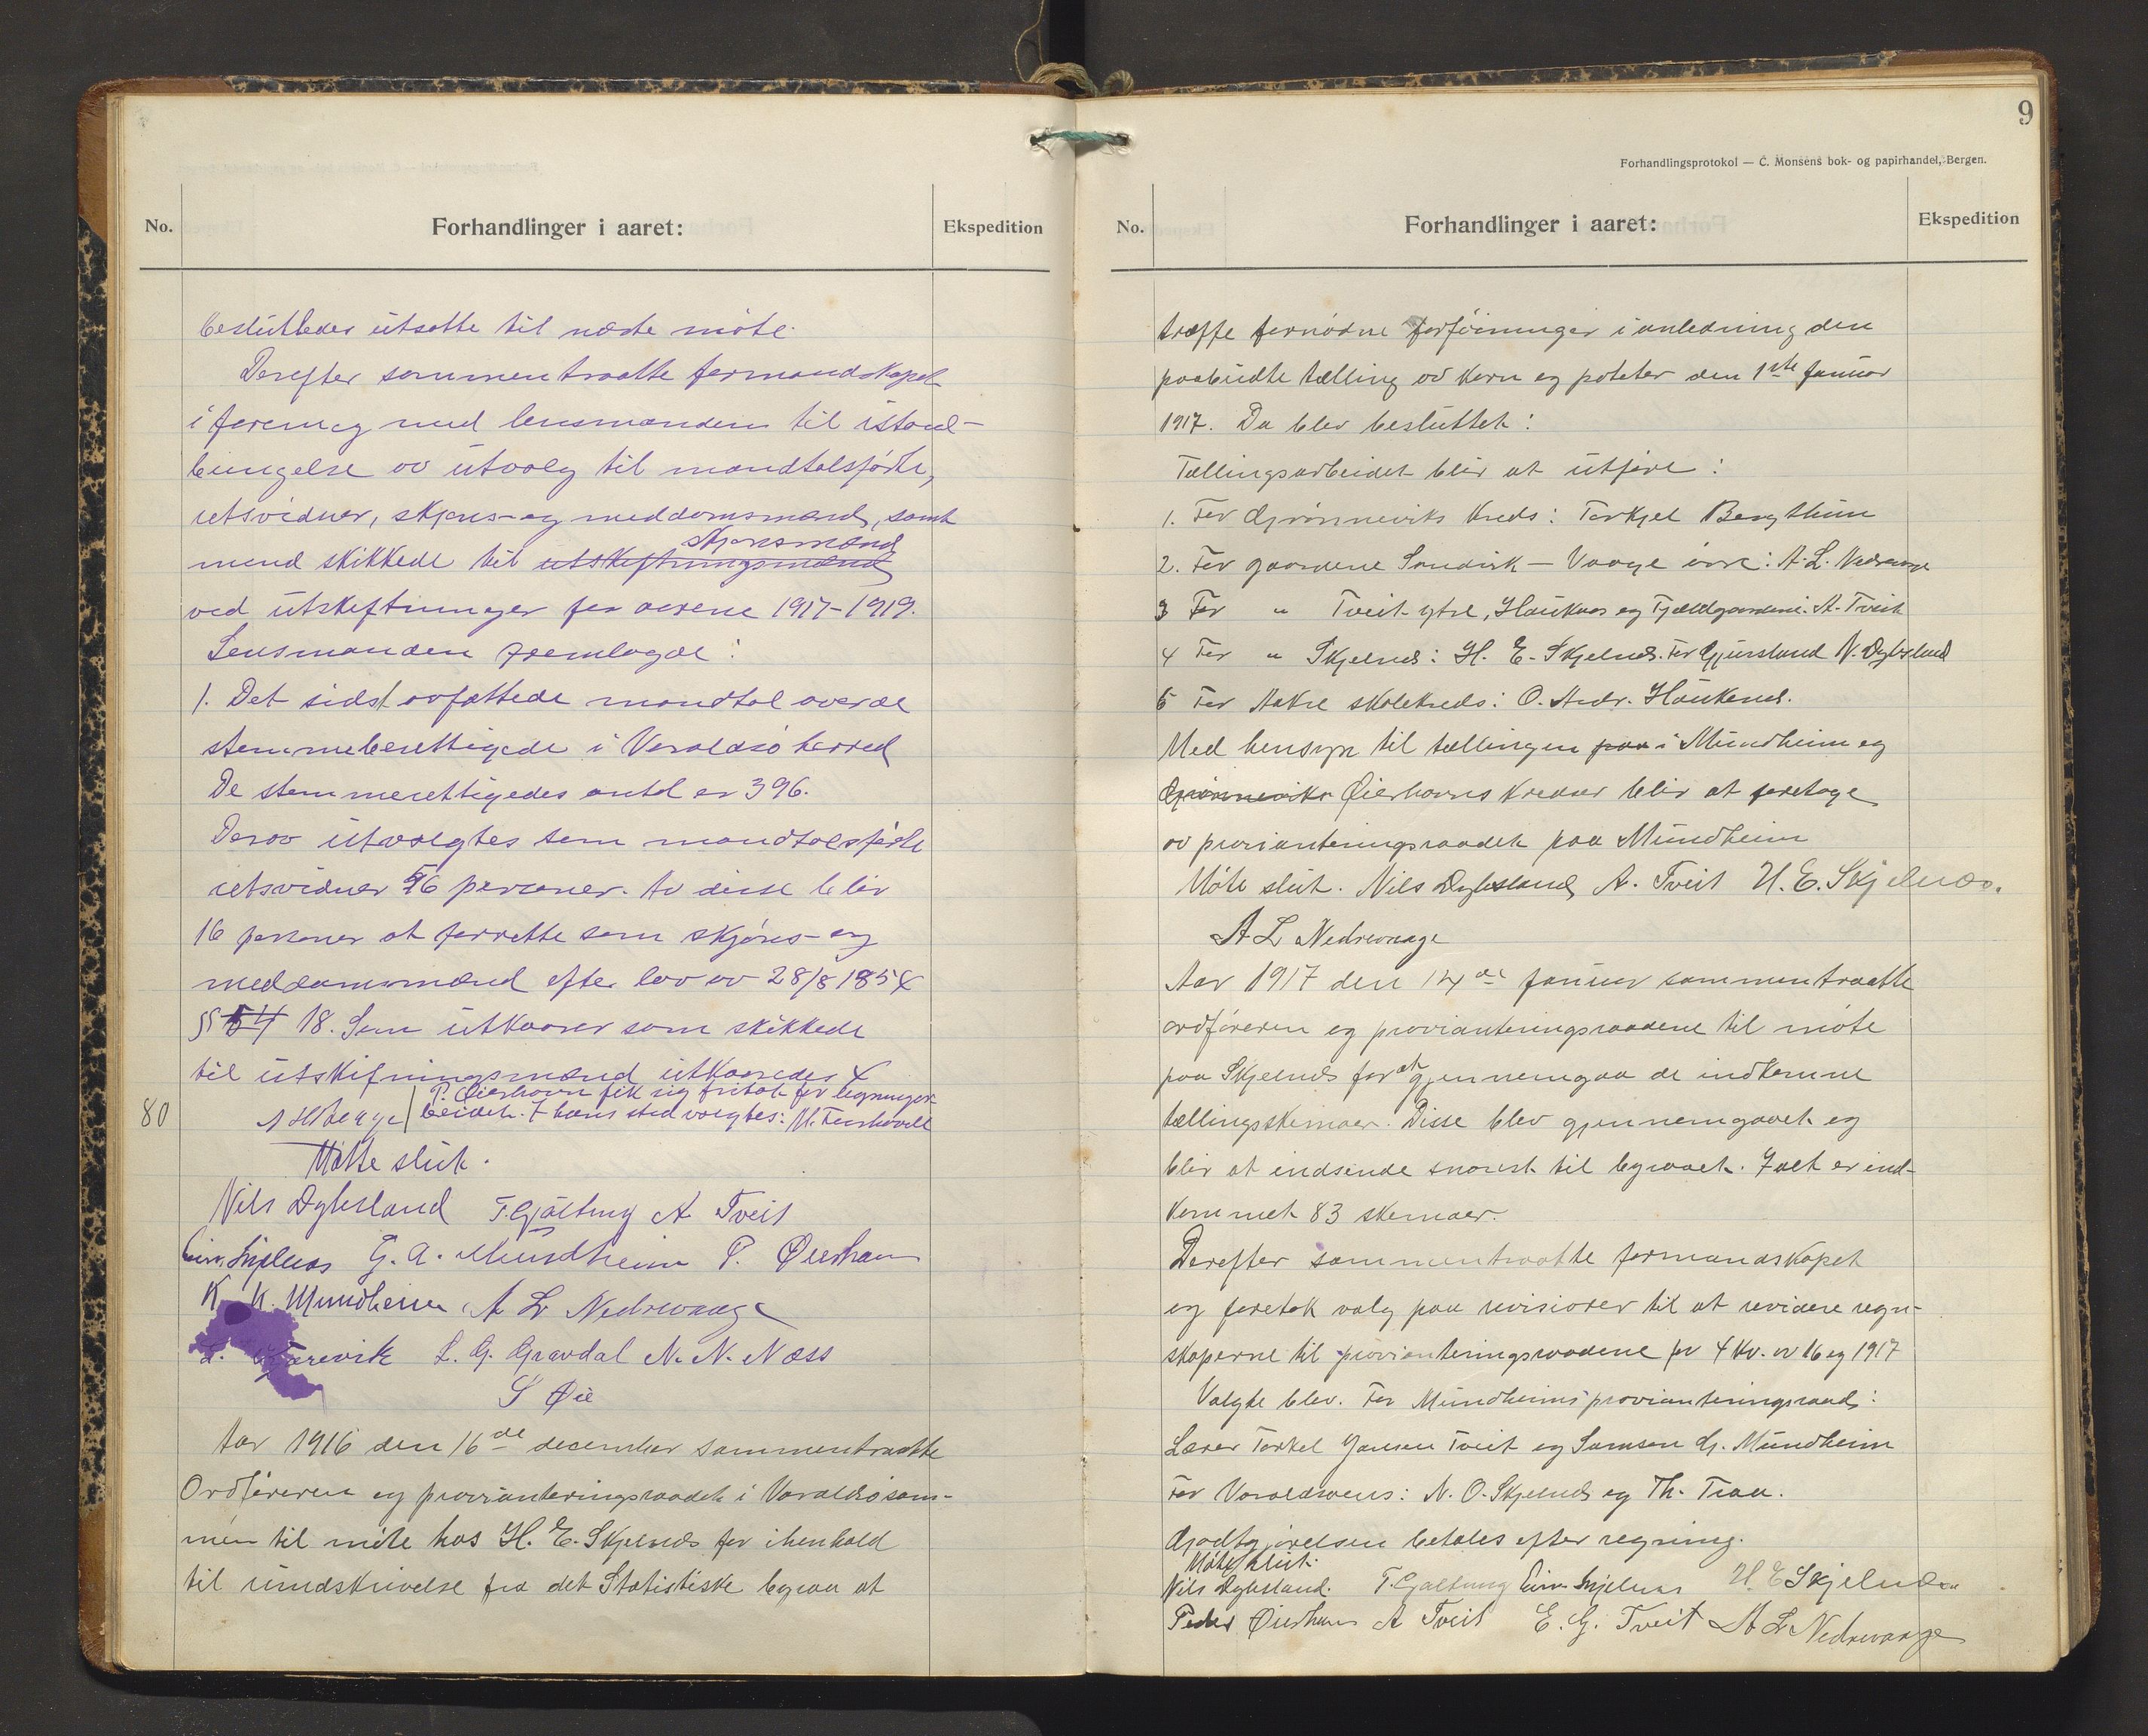 No.
Forhandlinger i aaret:
Ekspedition
besluttedes utsatte til næste møte.
Derefter sammentraatte formandskapet
i forening med lensmanden til istand-
bringelse av utvalg til mandtalsførte,
retsvidner, skjøns- og meddomsmænd, samt
mend skikkede til utskiftningsmænd skjønsmænd
ved utskiftninger for aarene 1917-1919.
Lensmanden fremlagde:
1. Det sidst avfattede mandtal over de
stemmeberettigede i Varaldsø herred
De stemmerettigedes antal er 396.
Derav utvalgtes som mandtalsførte
retsvidner 56 personer. Av disse blir
16 personer at forrette som skjøns- og
meddomsmænd efter lov av 28/8 1854
§ 54 18. Som utkaarer som skikkede
til utskifningsmænd utkaaredes 4
80
P. Øierhavn fik sig fritat for ligningsar-
beidet. I hans sted valgtes:
Møtte slut.
Nils Dybsland T. Gjaltung A Tveit
Eirv. Skjelnæs G. A. Mundheim P. Øierhavn
K. K. Mundheim A L Nedrevaage
L. G. Gravdal N. N. Næss
S Øie
Aar 1916 den 16de december sammentraatte
Ordføreren og provianteringsraadet i Varaldsø sam-
men til møte hos H. E. Skjelnæs for i henhold
til rundskrivelse fra det Statistiske byraa at
9
Forhandlingsprotokol — C. Monsens bok- og papirhandel, Bergen.
No.
Forhandlinger i aaret:
Ekspedition
træffe fornødne forføininger i anledning den
paabudte tælling av korn og poteter den 1ste januar
1917. Da blev besluttet:
Tællingsarbeidet blir at utføre:
1. For Gjrønneviks kreds: Torkjel Bergthun
2. For gaardene Sandvik — Vaage øvre: A. L. Nedrevaage
3 For " Tveit ytre, Haukaas og Fjældgaardene: A. Tveit
4 For " Skjelnæs: H. E. Skjelnæs. For Gjursland N. Dybsland
5 For Aakre skolekreds: O. Andr. Haukenæs.
Med hensyn til tællingen paa i Mundheim og
Gjrønneviks Øierhavns kredser blir at foretage
av provianteringsraadet paa Mundheim
Møte slut. Nils Dybsland A. Tveit H. E. Skjelnæs.
A L Nedrevaage
Aar 1917 den 14de januar sammentraatte
ordføreren og provianteringsraadene til møte
paa Skjelnæs for at gjennemgaa de indkomne
tællingsskemaer. Disse blev gjennemgaaet og
blir at indsende snarest til byraaet. Ialt er ind-
kommet 83 skemaer.
Derefter sammentraatte formandskapet
og foretok valg paa revisiorer til at revidere regn-
skaperne til provianteringsraadene for 4 kv. av 16 og 1917
Valgte blev. For Mundheims provianteringsraad:
Lærer Torkel Jansen Tveit og Samson G. Mundheim
For Varaldsøens: N. O. Skjelnæs og Th. Traa.
Godtgjørelsen betales efter regning.
Møte slut.
Nils Dybsland. T. Gjaltung Eirv. Skjelnæs H. E Skjelnæs
Peder Øierhavn A Tveit E. G. Tveit A L Nedrevaage